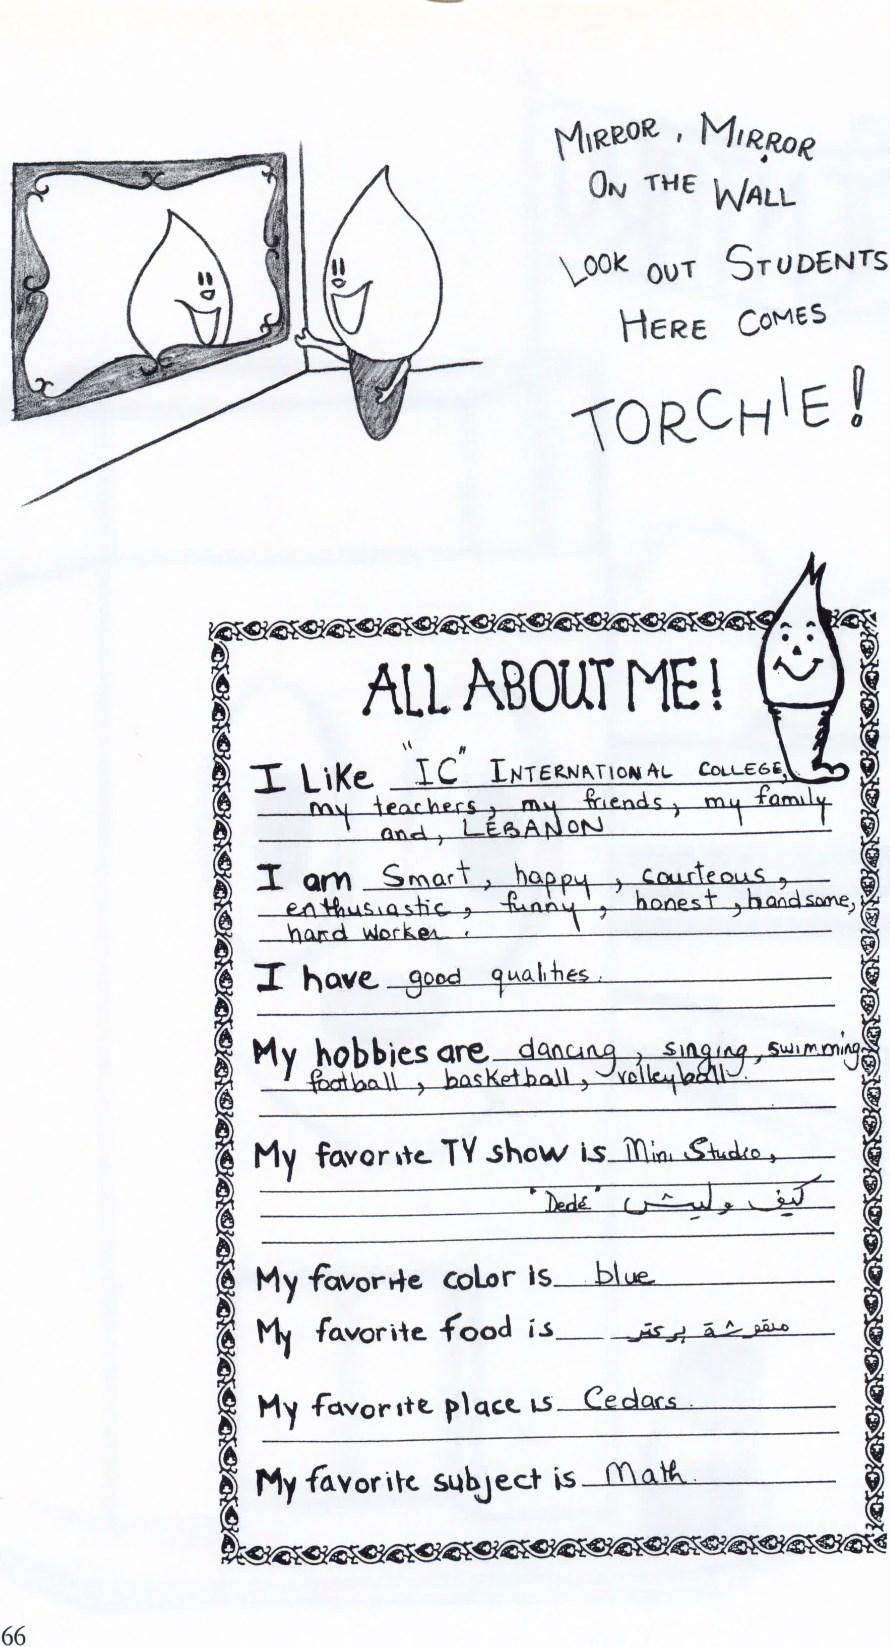 MIRROR, MIRROR
ON THE WALL
LOOK OUT STUDENTS
HERE COMES
TORCHIE!
ALL ABOUT ME!
I Like "IC" INTERNATIONAL COLLEGE,
my teachers, my friends, my family
and, LEBANON
I am Smart, happy, courteous,
enthusiastic, funny, honest, handsome,
hard worker.
I have good qualities.
My hobbies are dancing, singing, swimming
football, basketball, volleyball.
My favorite TV show is Mini Studio,
كيف وليش "Dedé"
My favorite color is blue
My favorite food is منقوشة
My favorite place is Cedars.
My favorite subject is Math.
66